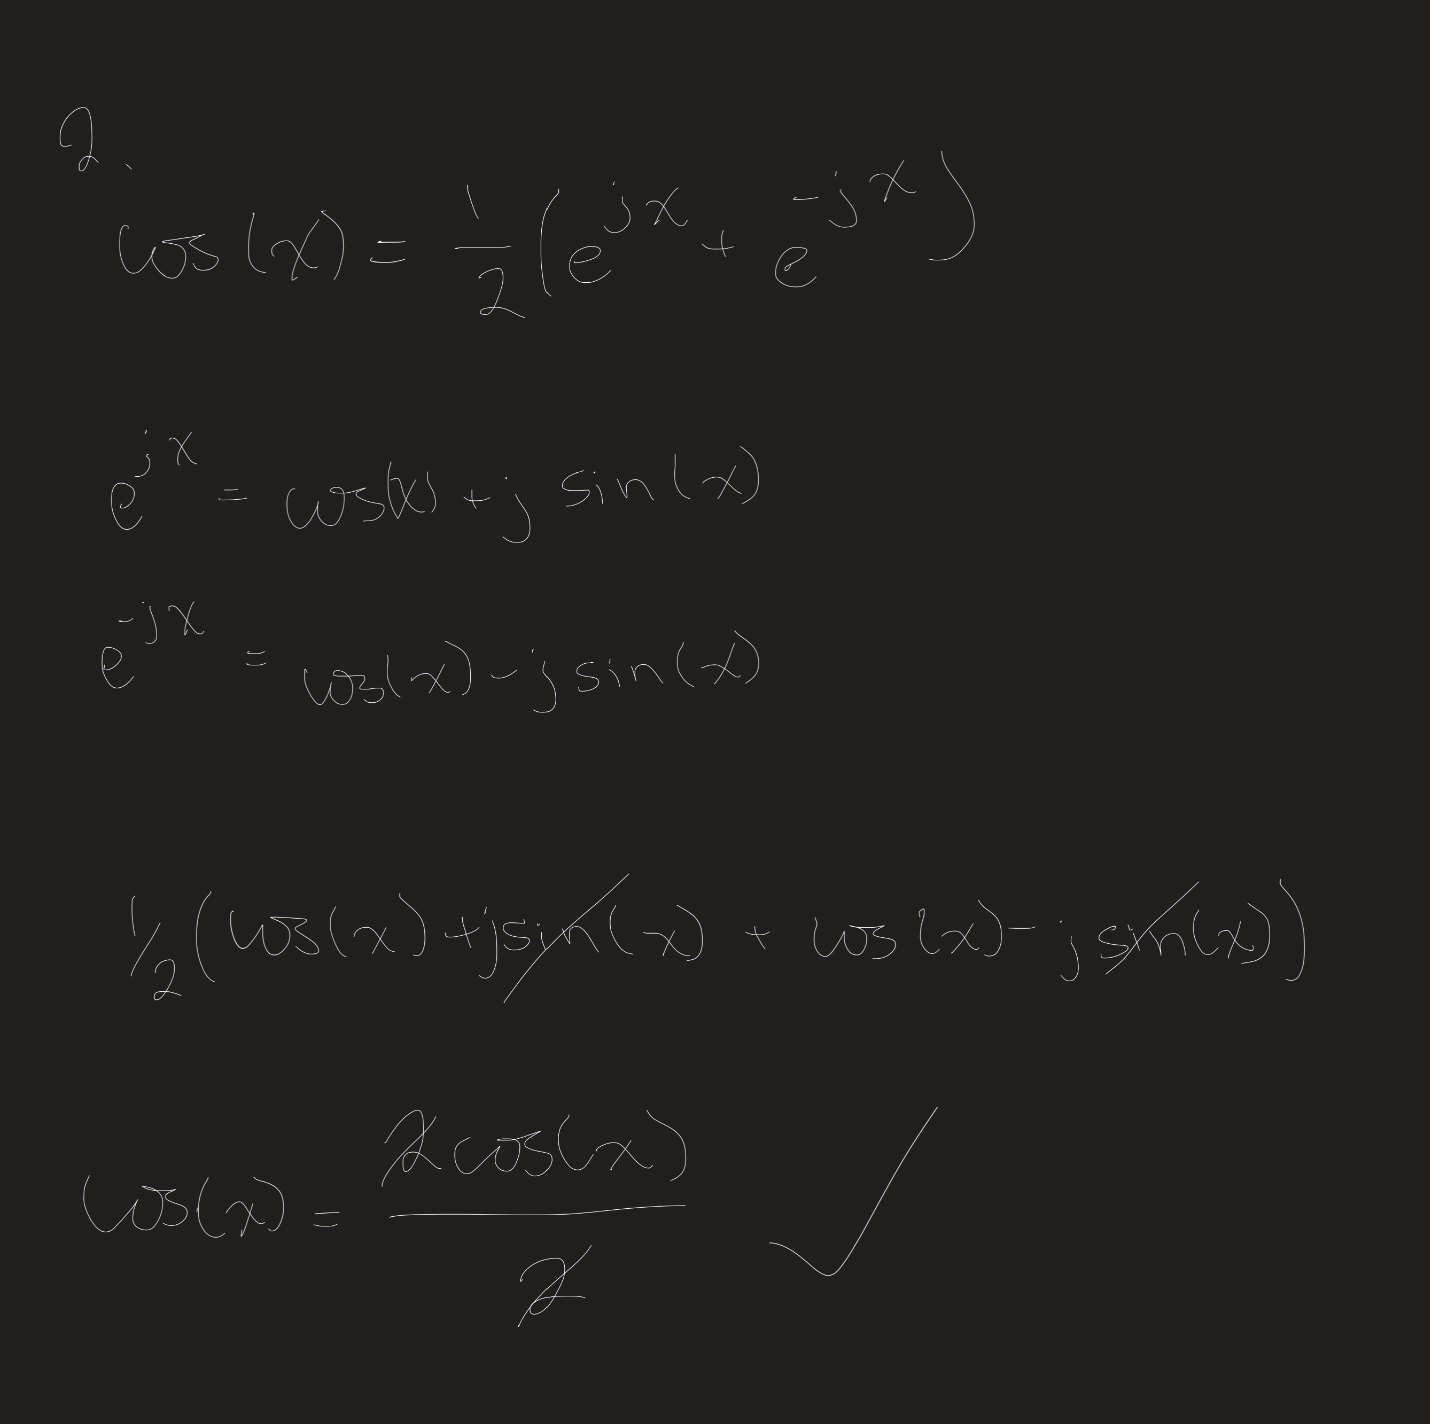 2.
cos(x) = 1/2 (e^jx + e^-jx)
e^jx = cos(x) + j sin(x)
e^-jx = cos(x) - j sin(x)
1/2 (cos(x) + jsin(x) + cos(x) - j sin(x))
cos(x) = 2cos(x) / 2 ✓